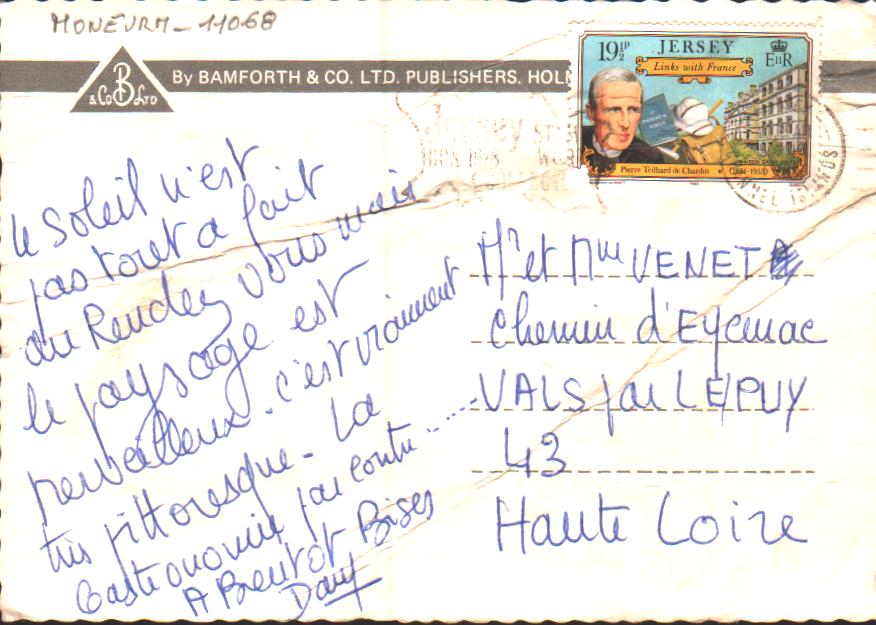 MONEVRM - 11068
B
& Co LTD
By BAMFORTH & CO. LTD. PUBLISHERS. HOL
19½P JERSEY EIIR
Links with France
Pierre Teilhard de Chardin (1881-1955)
Jersey
le soleil n'est
pas tout a fait
au Rendez vous mais
le paysage est
merveilleux - c'est vraiment
très pittoresque - La
Gastronomie par contre ......
A Bientot Bises
Dany
Mr et Mme VENET
Chemin d'Eycenac
VALS par LE PUY
43
Haute Loire